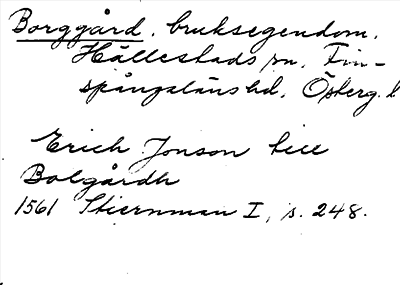 Borggård, bruksegendom,
Hällestads sn, Fin-
spångslänshd, Österg. l
Erich Jonson till
Bolgårdh
1561 Stiernman I, s. 248.